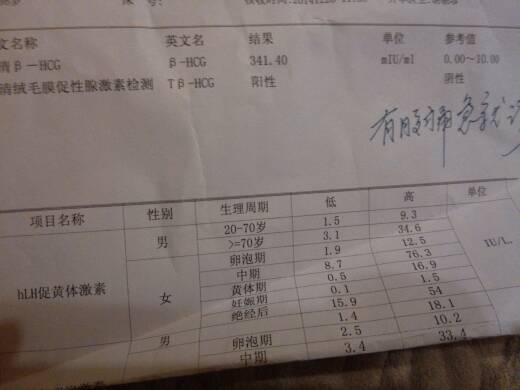 文名称 英文名 结果 单位 参考值
清β-HCG β-HCG 341.40 mIU/ml 0.00~10.00
清绒毛膜促性腺激素检测 Tβ-HCG 阳性 阴性
有腹痛急就诊
项目名称 性别 生理周期 低 高 单位
hLH促黄体激素 男 20-70岁 1.5 9.3 IU/L
>=70岁 3.1 34.6
女 卵泡期 1.9 12.5
中期 8.7 76.3
黄体期 0.5 16.9
妊娠期 0.1 1.5
绝经后 15.9 54
男 1.4 18.1
卵泡期 2.5 10.2
中期 3.4 33.4